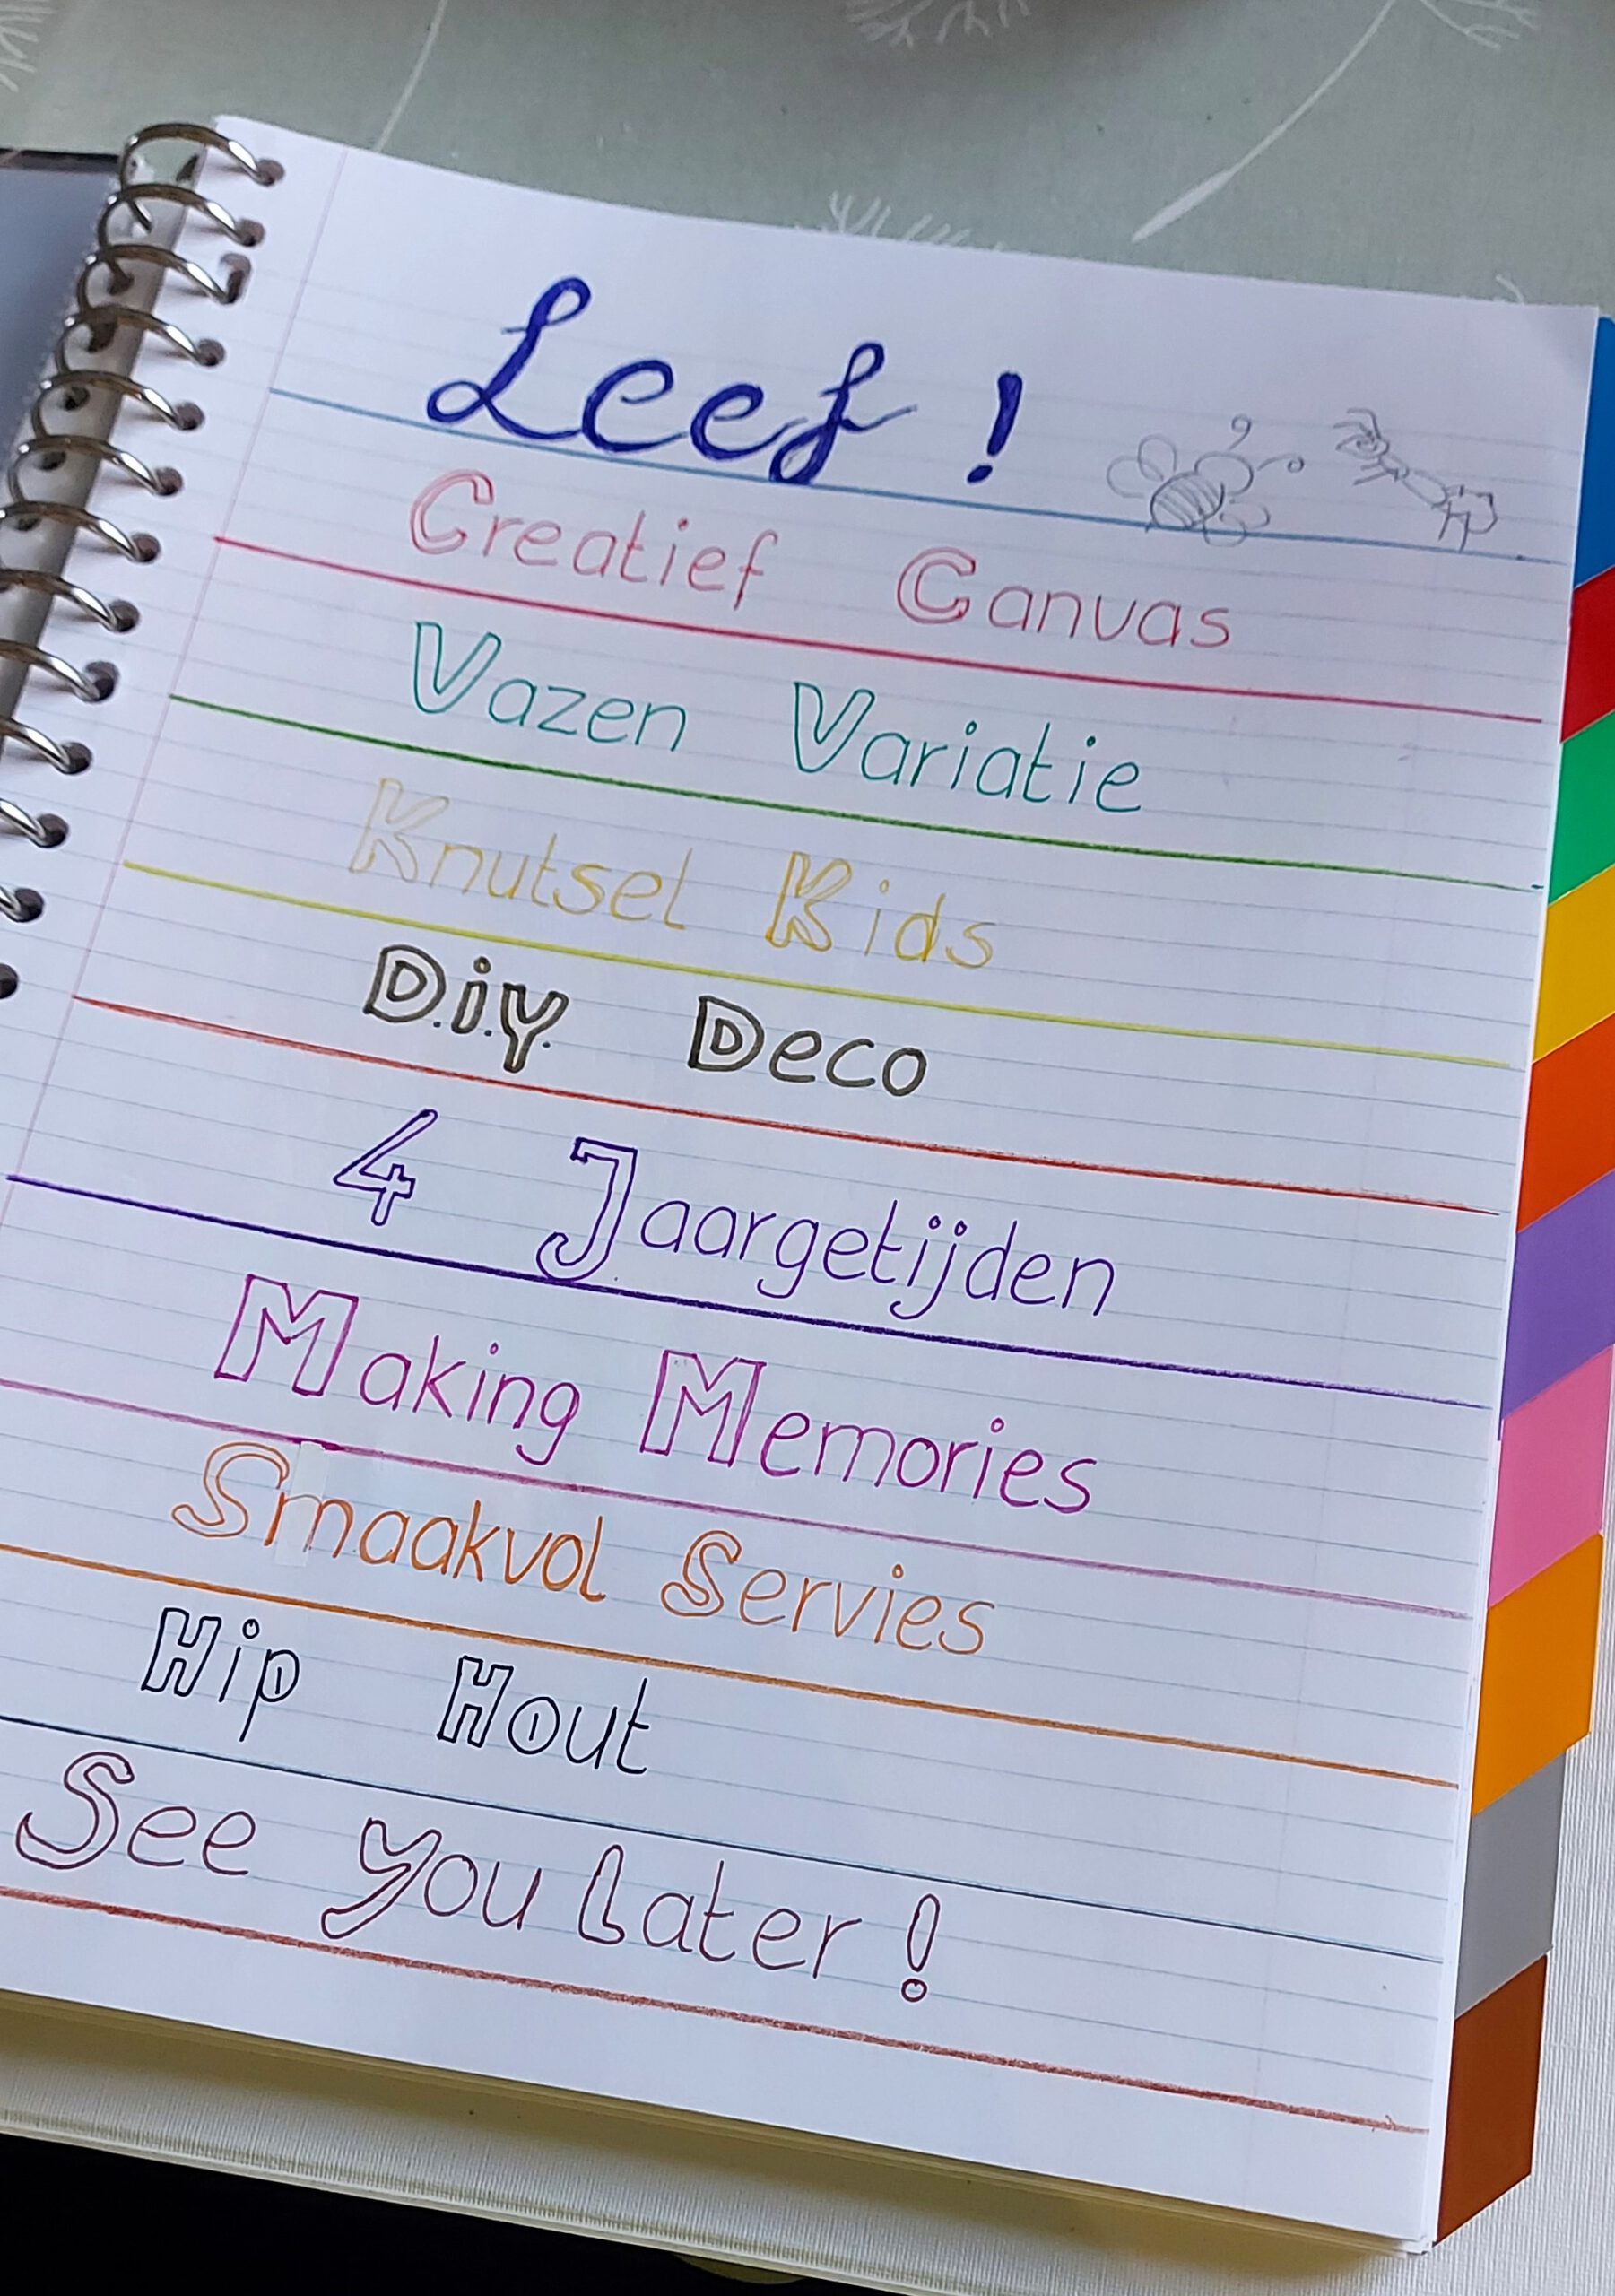 Leef !
Creatief Canvas
Vazen Variatie
Knutsel Kids
D.i.y. Deco
4 Jaargetijden
Making Memories
Smaakvol Servies
Hip Hout
See you Later !